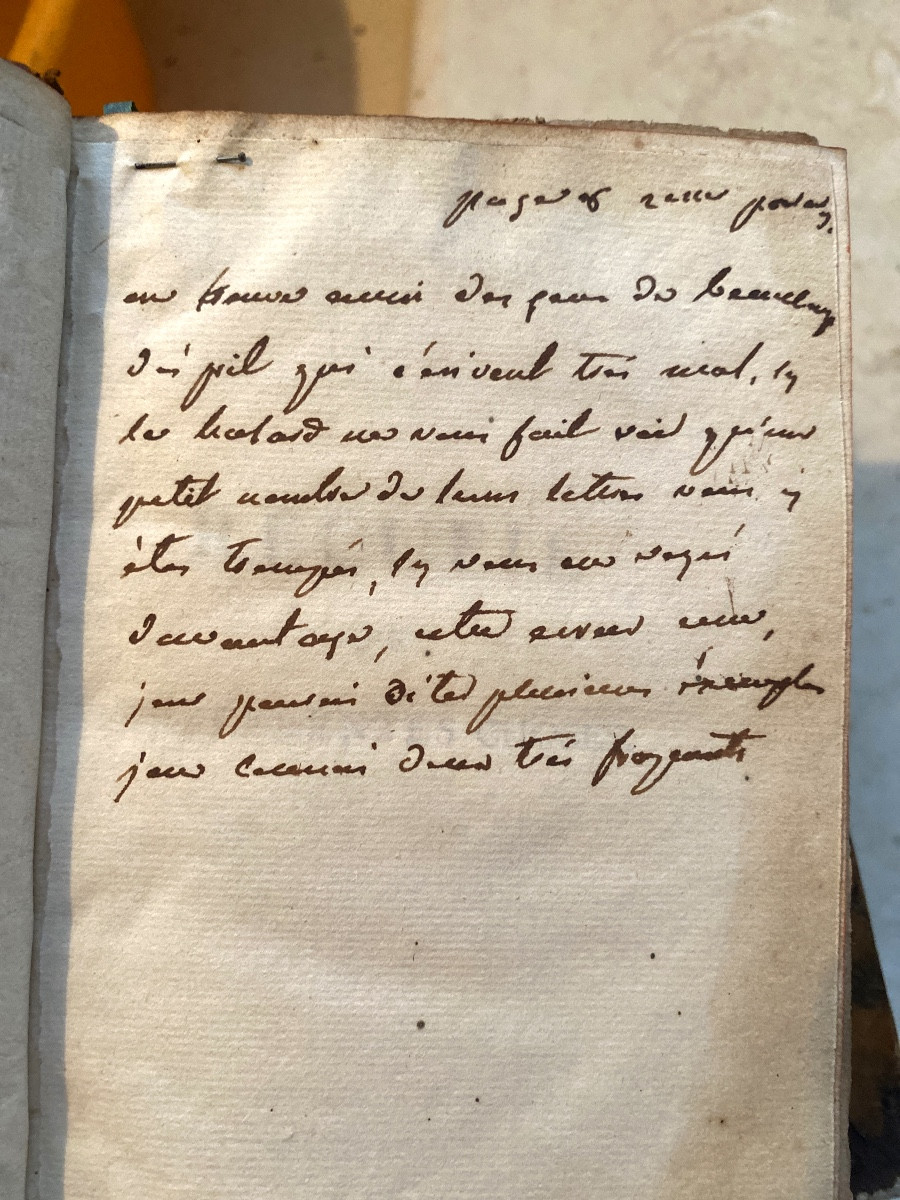 page 26 2eme
on trouve aussi des gens de beaucoup
d'és prit qui écrivent très mal, sy
le hasard ne vous fait voir qu'un
petit nombre de leurs lettres vous y
êtes trompés, sy vous en voyés
davantage, votre erreur cesse,
jen pourai citer plusieurs éxemples
jen connai deux très frapants